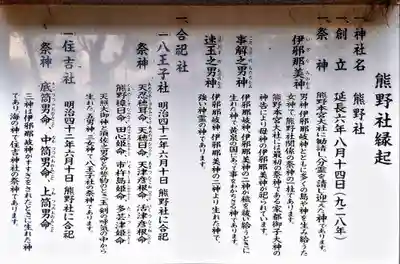 熊野社縁起
一、神社名 熊野社
一、創立 延長六年八月十四日（九二八年）
一、祭神 熊野本宮大社に勧請し分霊を請け迎えた神であります。
伊邪那美神 男神 伊邪那岐神とともに多くの島や神を生み給うた
女神で熊野社関係の祭神の一柱であります。
熊野本宮大社には最初の祭神である家都御子大神の
神告により母神の伊邪那美神が祀られています
事解之男神 伊邪那岐神、伊邪那美神の二神が穢を祓い給うときに
生れた神で、黄泉の国にあって事をわかちさる神であります。
速玉之男神 伊邪那岐神、伊邪那美神の二神より生れた神で、
強い神霊の神であります。
一、合祀社
一、八王子社 明治四十二年六月十日 熊野社に合祀
祭神 天忍穂耳命 天穂日命 天津彦根命 活津彦根命
熊野樟日命 田心姫命 市杵島姫命 多岐津姫命
天照大御神と須佐之男命との誓約のとき玉剣の呼気の中から
生れた五男神三女神で八王子社の祭神であります。
一、住吉社 明治四十二年六月十日 熊野社に合祀
祭神 底筒男命 中筒男命 上筒男命
三神は伊邪那岐神がみそぎをされたときに生れた神
であり、海の神で住吉神社の祭神であります。